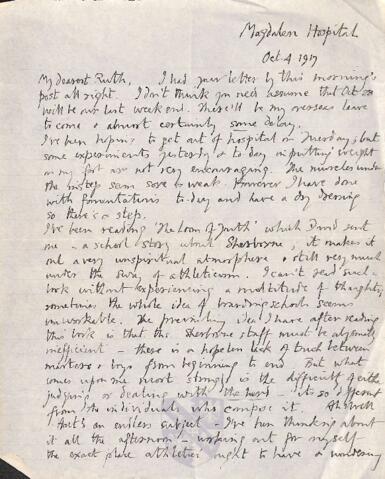 Magdalen Hospital
Oct 4 1917
My dearest Ruth, I had your letter by this morning's
post all right. I don't think you need assume that Oct 20
will be our last week end. There'll be my overseas leave
to come & almost certainly some delay.
I've been hoping to get out of hospital on Tuesday; but
some experiments yesterday & to day in putting weight
on my foot are not very encouraging. The muscles under
the instep seem sore & weak. However I have done
with fomentations to-day and have a dry dressing
so there's a step.
I've been reading 'The Loom of Youth' which David sent
me – a school story about Sherborne, it makes it
out a very unspiritual atmosphere & still very much
under the sway of athleticism. I can't read such a
book without experiencing a multitude of thoughts;
sometimes the whole idea of boarding school seems
unworkable. The prevailing idea I have after reading
this book is that the Sherborne staff must be abysmally
inefficient – there is a hopeless lack of touch between
masters & boys from beginning to end. But what
comes upon me most strongly is the difficulty of either
judging or dealing with the herd – it's so different
from the individuals who compose it. Ah well
that's an endless subject. I've been thinking about
it all the afternoon & working out for myself
the exact place athletics ought to have & wondering